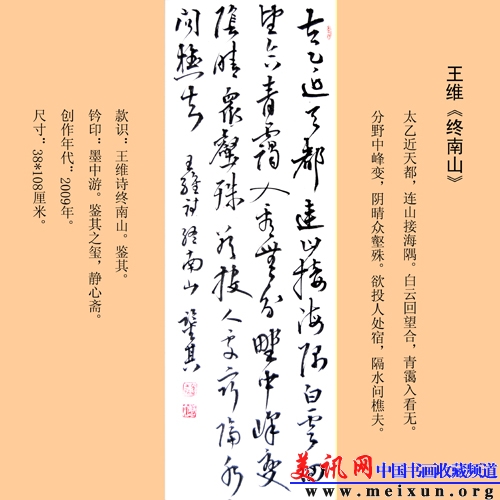 王维《终南山》
太乙近天都，连山接海隅。白云回望合，青霭入看无。
分野中峰变，阴晴众壑殊。欲投人处宿，隔水问樵夫。
太乙近天都連山接海隅白雲回
望合青靄入看無分野中峰變
陰晴眾壑殊欲投人處宿隔水
問樵夫
王維詩終南山 鑒其
款识：王维诗终南山。鉴其。
钤印：墨中游。鉴其之玺，静心斋。
创作年代：2009年。
尺寸：38*108厘米。
美讯网 中国书画收藏频道
www.meixun.org